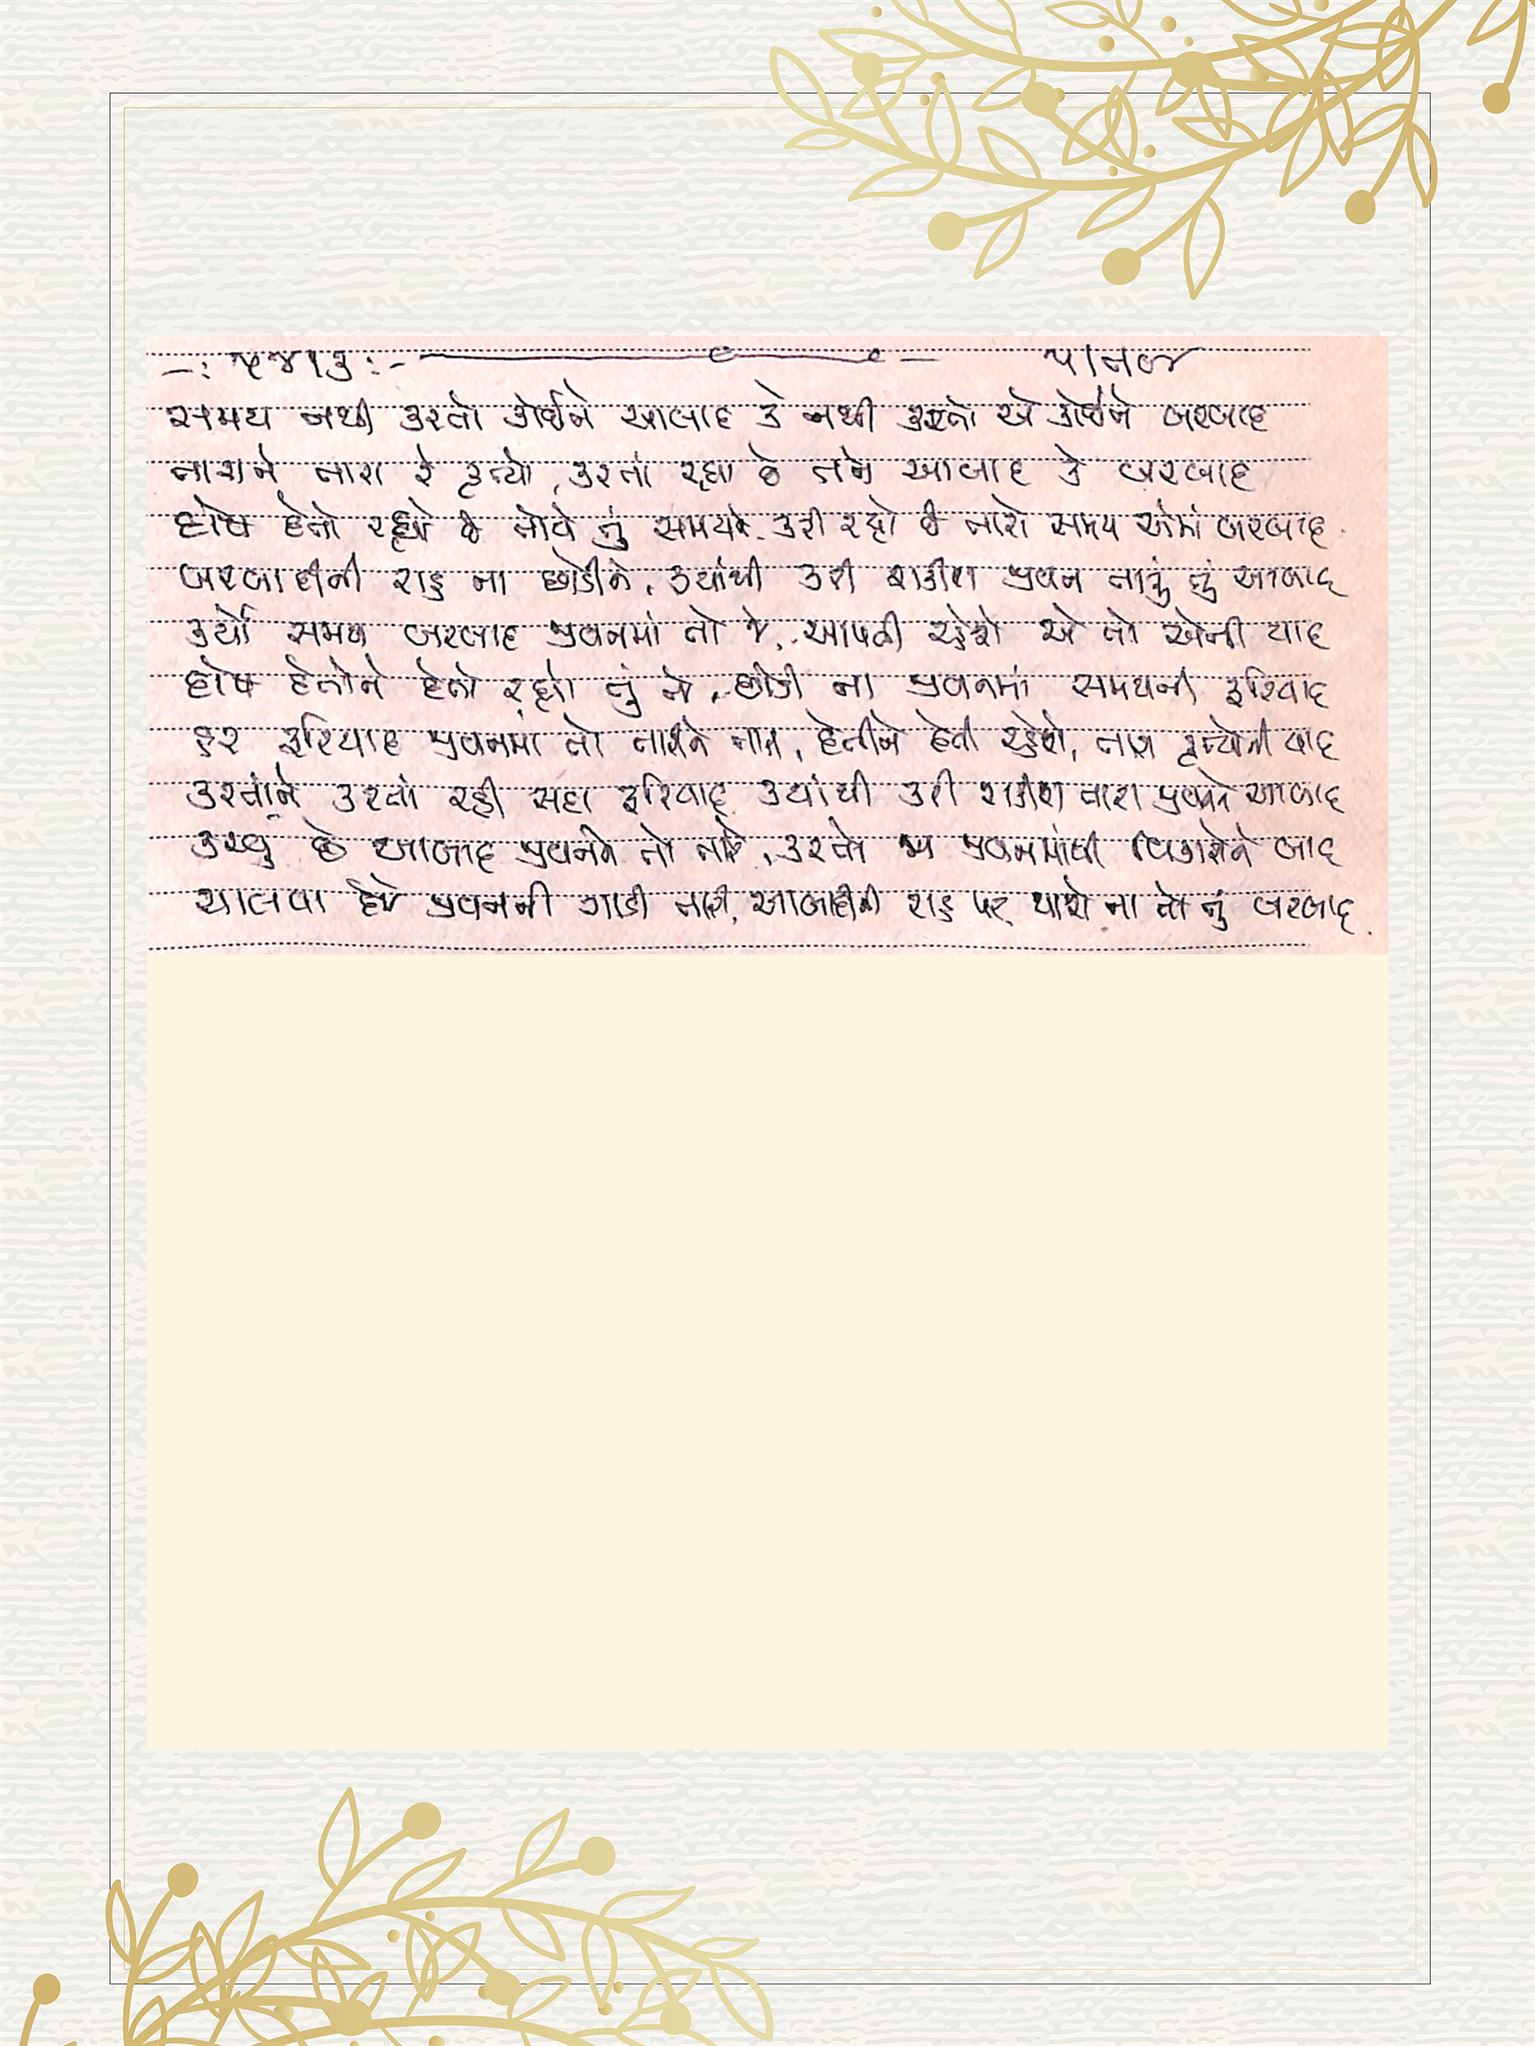 સમય નથી કરતો કોઈને આબાદ કે નથી કરતો એ કોઈને બરબાદ
તારાને તારા રે કૃત્યો, કરતાં રહ્યાં છે તને આબાદ કે બરબાદ
દોષ દેતો રહ્યો છે તોયે તું સમયને કરી રહ્યો છે તારો સમય એમાં બરબાદ
બરબાદીની રાહ ના છોડીને, ક્યાંથી કરી શકીશ જીવન તારું તું આબાદ
કર્યો સમય બરબાદ જીવનમાં તો જે, આપતી રહેશે એ તો એની યાદ
દોષ દેતોને દેતો રહ્યો તું તો, છોડી ના જીવનમાં સમયની ફરિયાદ
હર ફરિયાદ જીવનમાં તો તારીને તારી, દેતીને દેતી રહેશે, તારા કૃત્યોની યાદ
કરતાંને કરતાં રહી સદા ફરિયાદ ક્યાંથી કરી શકીશ તારા જીવનને આબાદ
કરવું છે આબાદ જીવનને તો તારે, કરજે જીવનમાંથી વિકારોને બાદ
ચાલવા દેજે જીવનની ગાડી તારી, આબાદીની રાહ પર થાશે ના તો તું બરબાદ